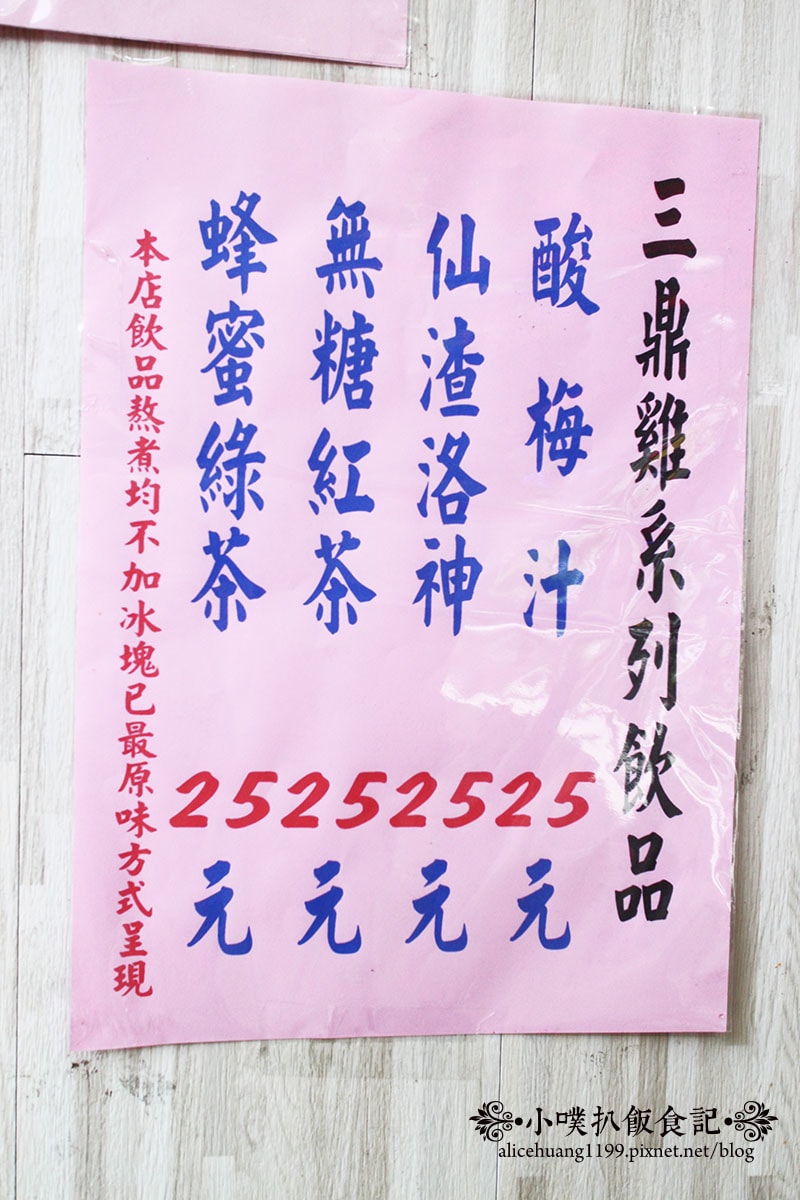 三鼎雞系列飲品
酸梅汁 25元
仙渣洛神 25元
無糖紅茶 25元
蜂蜜綠茶 25元
本店飲品熬煮均不加冰塊已最原味方式呈現
小噗扒飯食記
alicehuang1199.pixnet.net/blog